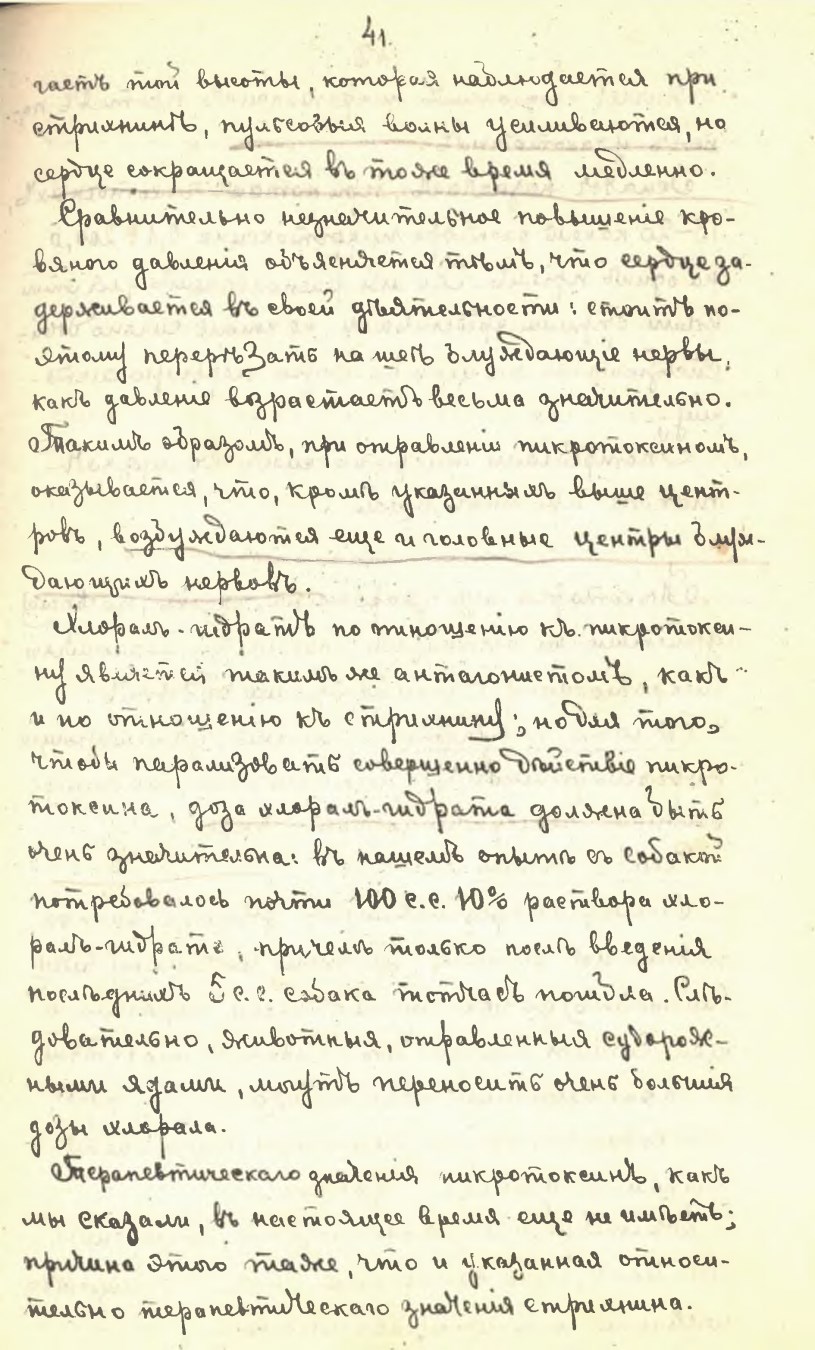 41.
гаетъ той высоты, которая наблюдается при
стрихнинѣ, пульсовыя волны усиливаются, но
сердце сокращается въ тоже время медленно.
Сравнительно незначительное повышеніе кро-
вяного давленія объясняется тѣмъ, что сердце за-
держивается въ своей дѣятельности: стоитъ по-
этому перерѣзать на шеѣ блуждающіе нервы,
какъ давленіе возрастаетъ весьма значительно.
Такимъ образомъ, при отравленіи пикротоксиномъ,
оказывается, что, кромѣ указанныхъ выше цент-
ровъ, возбуждаются еще и головные центры блуж-
дающихъ нервовъ.
Хлоралъ-гидратъ по отношенію къ пикротокси-
ну является такимъ же антагонистомъ, какъ
и по отношенію къ стрихнину; но для того,
чтобы парализовать совершенно дѣйствіе пикро-
токсина, доза хлоралъ-гидрата должна быть
очень значительна: въ нашемъ опытѣ съ собакой
потребовалось почти 100 с.с. 10% раствора хло-
ралъ-гидрата, причемъ только послѣ введенія
послѣднихъ 5 с.с. собака тотчасъ пошла. Слѣ-
довательно, животныя, отравленныя судорож-
ными ядами, могутъ переносить очень большія
дозы хлорала.
Терапевтическаго значенія пикротоксинъ, какъ
мы сказали, въ настоящее время еще не имѣетъ;
причина этого таже, что и указанная относи-
тельно терапевтическаго значенія стрихнина.